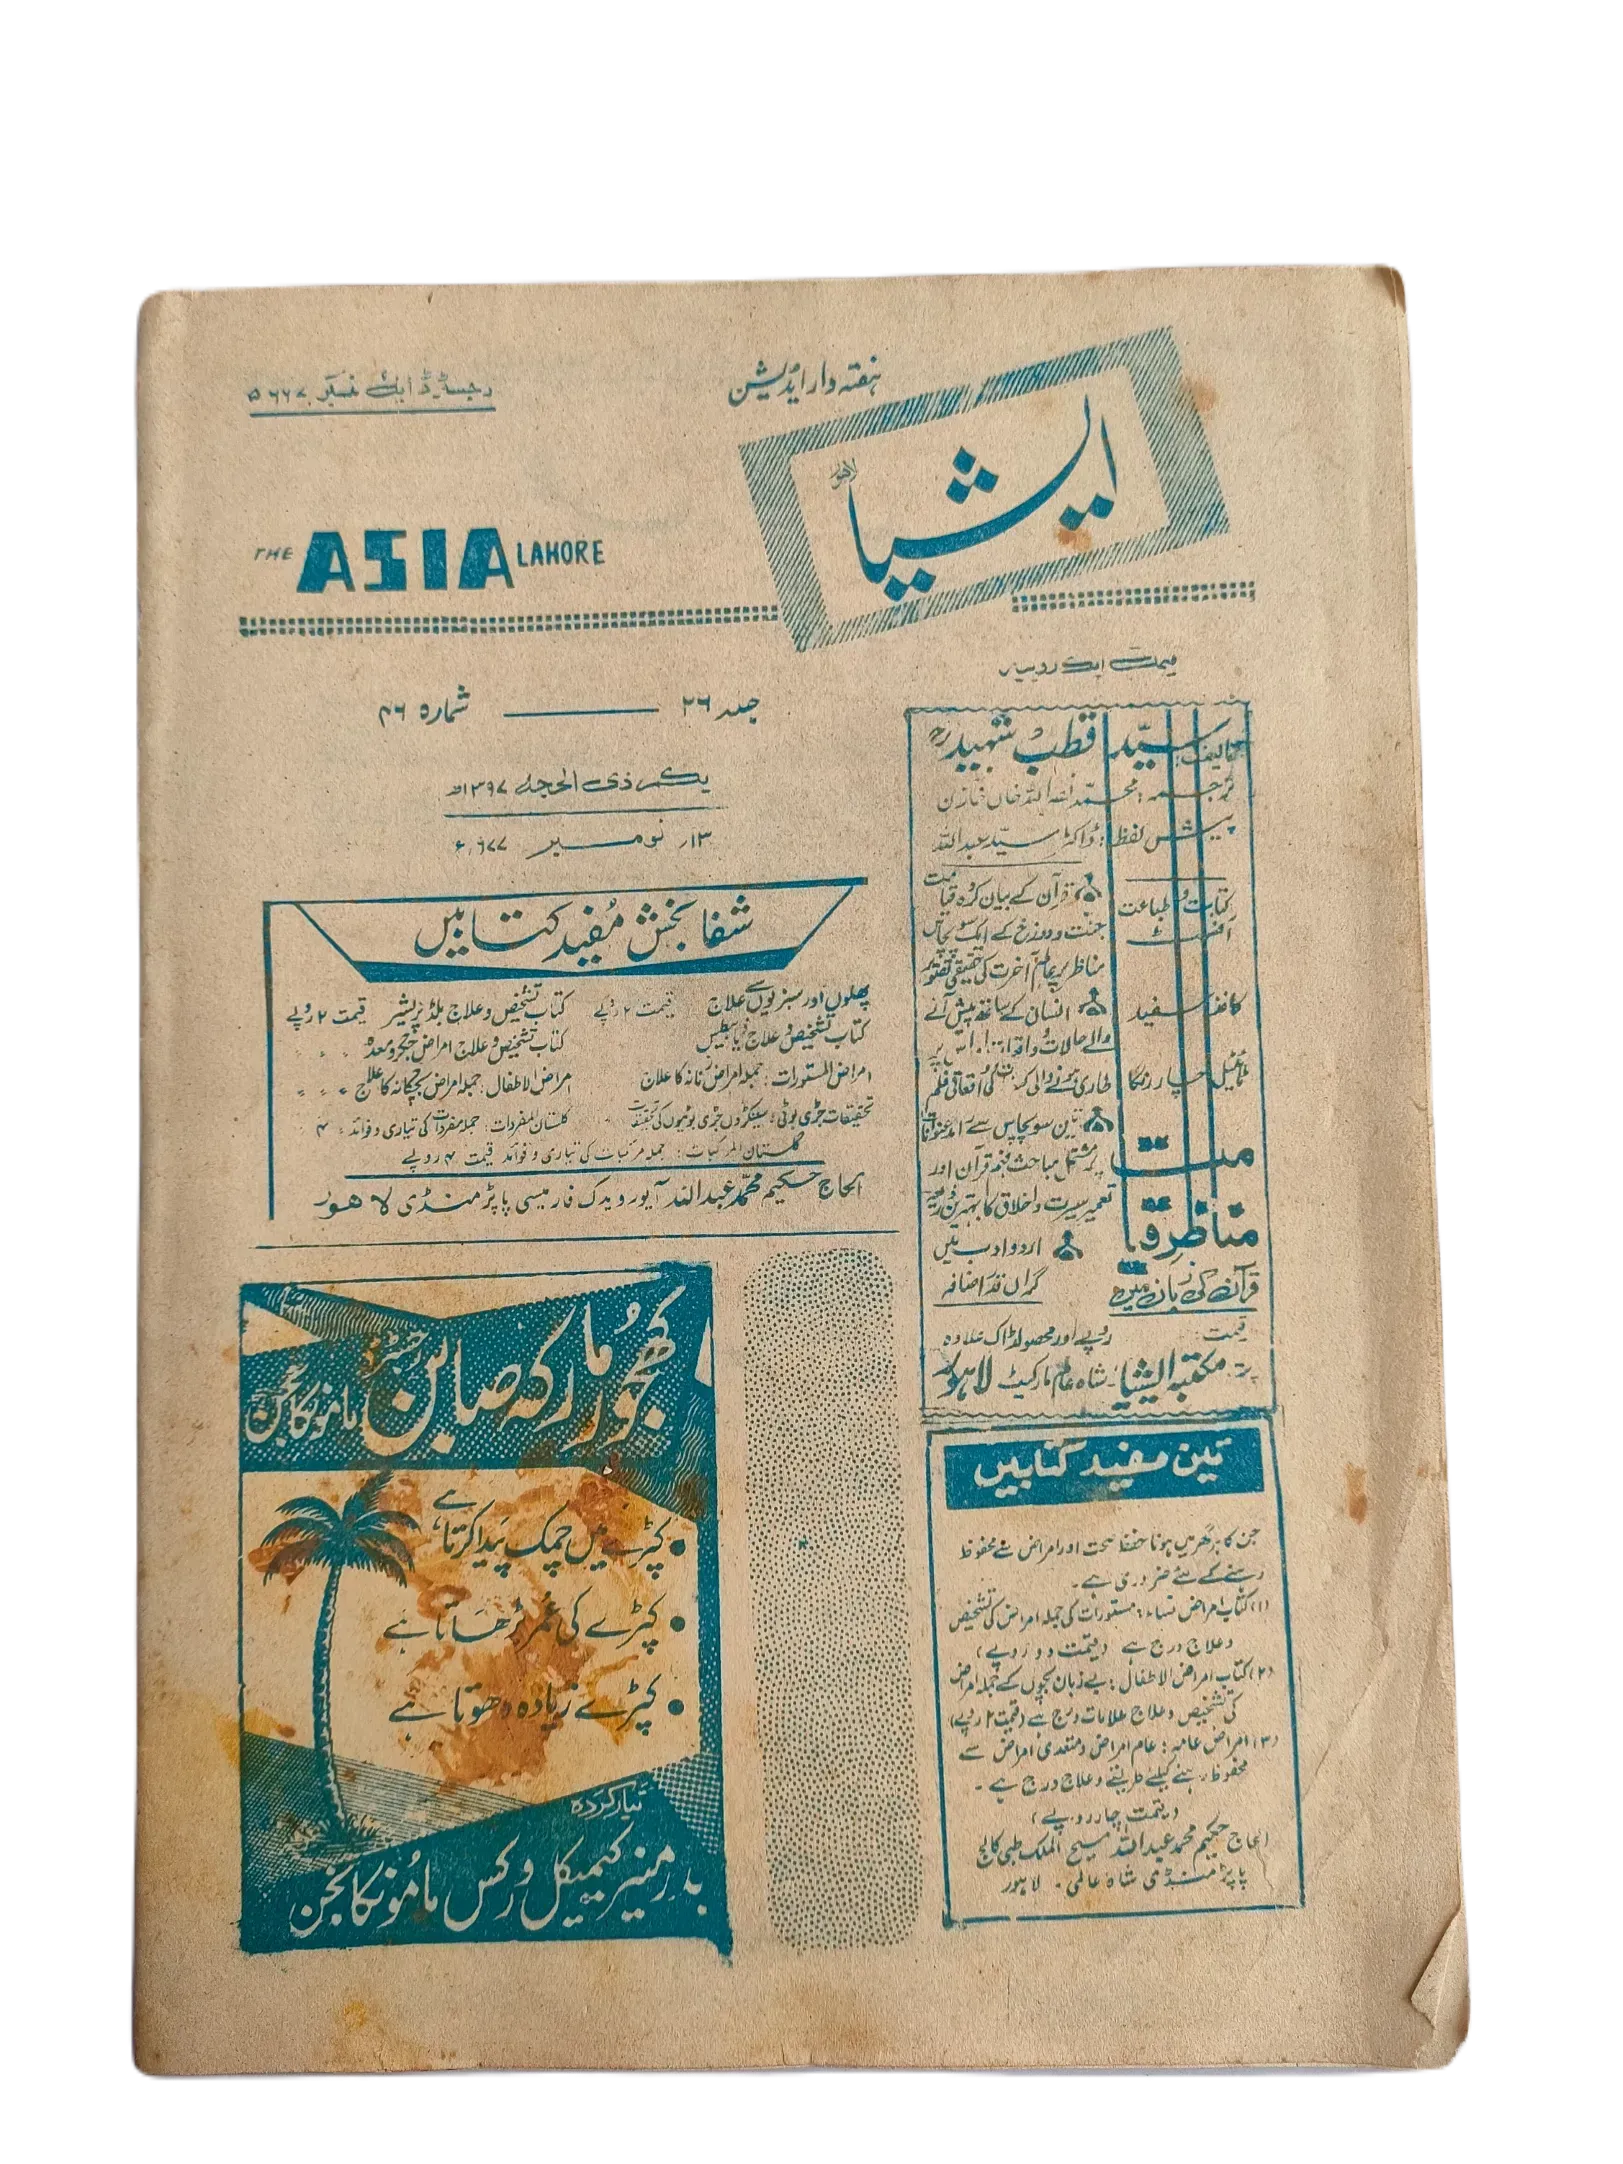 رجسٹرڈ ایل نمبر ۵۶۶۷
ہفتہ وار ایڈیشن
ایشیا
لاہور
THE ASIA LAHORE
قیمت ایک روپیہ
جلد ۲۶ ——— شمارہ ۴۶
یکم ذی الحجہ ۱۳۹۷ھ
۱۳ر نومبر ۶۷۷
تالیف: سیّد قطب شہید رح
ترجمہ: محمد نصر اللہ خاں خازن
پیش لفظ: ڈاکٹر سید عبد اللہ
کتابت و طباعت
آفسٹ
کاغذ سفید
ٹائیٹل چار رنگا
قرآن کے بیان کردہ قیامت
جنت و دوزخ کے ایک سو پچاس
مناظر پر عالم آخرت کی حقیقی تصویر
انسان کے ساتھ پیش آنے
والے حالات و واقعات اس پر
طاری ہونے والی
تین سو پچاس سے زائد عنوانات
پر مشتمل مباحث فہم قرآن اور
تعمیر سیرت و اخلاق کا بہترین ذریعہ
اردو ادب میں
گراں قدر اضافہ
مناظر قیامت
قرآن کی زبان میں
قیمت روپے اور محصول ڈاک علاوہ
پتہ: مکتبہ ایشیا - شاہ عالم مارکیٹ لاہور
شفا بخش مُفید کتابیں
پھلوں اور سبزیوں سے علاج قیمت ۲ روپے کتاب تشخیص و علاج بلڈ پریشر قیمت ۲ روپے
کتاب تشخیص و علاج ذیابطیس کتاب تشخیص و علاج امراض جگر و معدہ 〃 〃 〃
امراض المستورات: جملہ امراض زنانہ کا علاج امراض الاطفال: جملہ امراض بچگانہ کا علاج 〃 〃 〃
تحقیقات جڑی بوٹی: سینکڑوں جڑی بوٹیوں کی تحقیقات گلستان المفردات: جملہ مفردات کی تیاری و فوائد: ۴
گلستان المرکبات: جملہ مرکبات کی تیاری و فوائد قیمت ۴ روپے
الحاج حکیم محمد عبد اللہ آیورویدک فارمیسی پاپڑ منڈی لاہور
کھجور مارکہ صابن رجسٹرڈ ماموں کانجن
• کپڑے میں چمک پیدا کرتا ہے
• کپڑے کی عُمر بڑھاتا ہے
• کپڑے زیادہ دھوتا ہے
تیار کردہ
بدر منیر کیمیکل ورکس ماموں کانجن
تین مفید کتابیں
جن کا ہر گھر میں ہونا حفظ صحت اور امراض سے محفوظ
رہنے کے لئے ضروری ہے۔
(۱) کتاب امراض نساء: مستورات کی جملہ امراض کی تشخیص
و علاج درج ہے (قیمت دو روپے)
(۲) کتاب امراض الاطفال: بے زبان بچوں کے جملہ امراض
کی تشخیص و علاج علامات درج ہے (قیمت ۲ روپے)
(۳) امراض عامہ: عام امراض و متعدی امراض سے
محفوظ رہنے کیلئے طریقے و علاج درج ہے۔
(قیمت چار روپے)
الحاج حکیم محمد عبد اللہ مسیح الملک طبی کالج
پاپڑ منڈی شاہ عالمی۔ لاہور